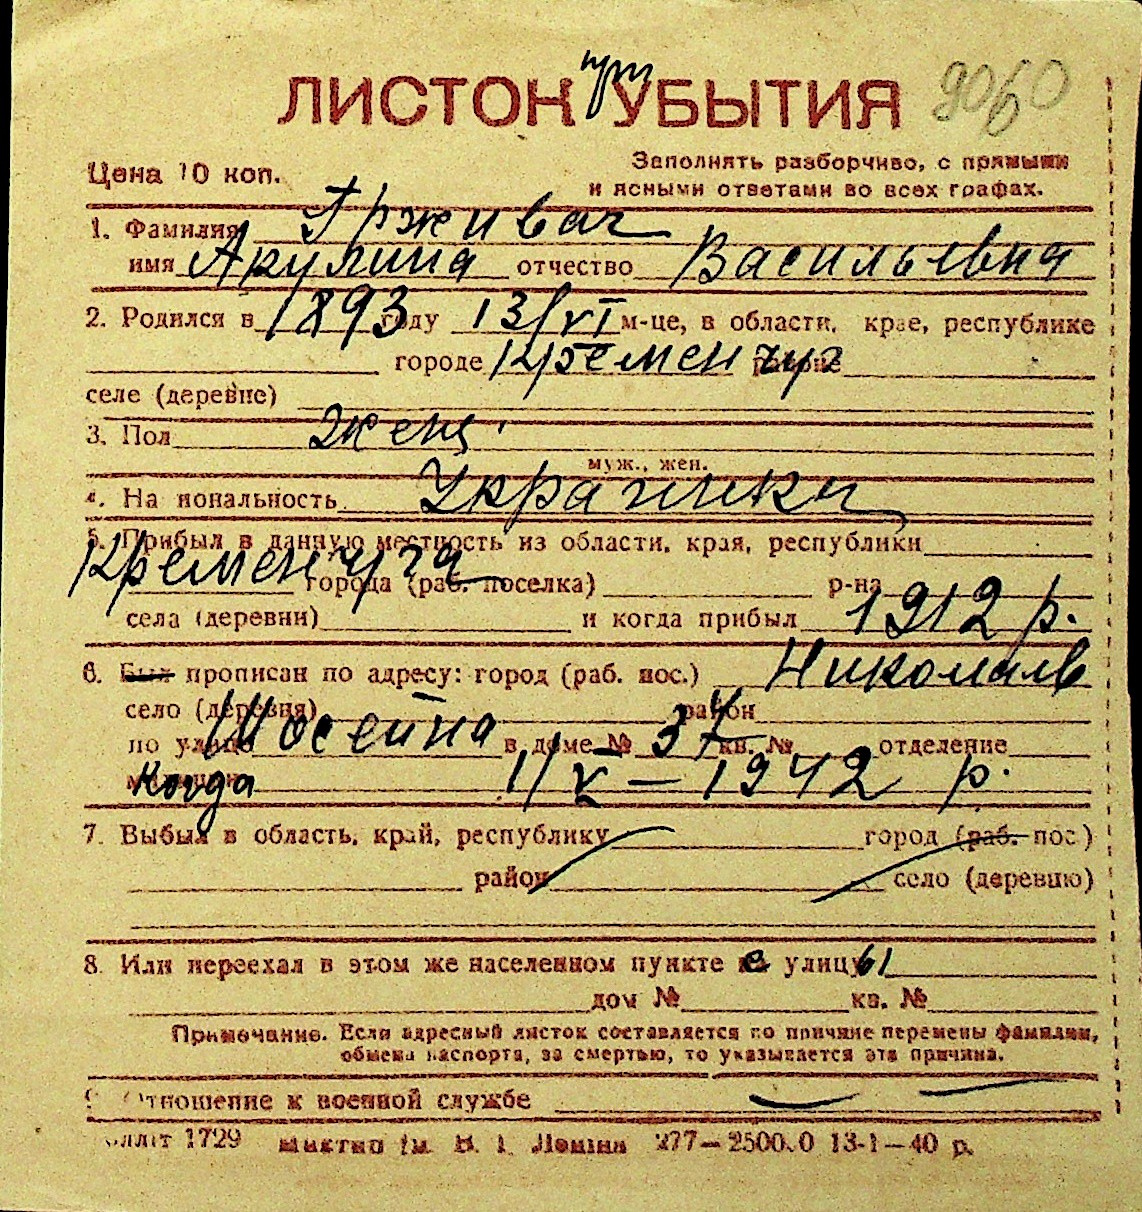 при
ЛИСТОК УБЫТИЯ 9060
Цена 10 коп. Заполнять разборчиво, с прямыми
и ясными ответами во всех графах.
1. Фамилия Грживач
имя Акулина отчество Васильевна
2. Родился в 1893 году 13/VI м-це, в области, крае, республике
городе Кременчуг районе
селе (деревне)
3. Пол Женщ.
муж., жен.
4. Национальность Украинка
5. Прибыл в данную местность из области, края, республики
Кременчуга города (раб. поселка) р-на
села (деревни) и когда прибыл 1912 р.
6. Был прописан по адресу: город (раб. пос.) Николаїв
село (деревня) район
по улице Шосейна в доме № 37 кв. № отделение
милиции Когда 1/V – 1942 р.
7. Выбыл в область, край, республику город (раб. пос.)
район село (деревню)
8. Или переехал в этом же населенном пункте с улицы
дом № кв. №
Примечание. Если адресный листок составляется по причине перемены фамилии,
обмена паспорта, за смертью, то указывается эта причина.
9. Отношение к военной службе
1729 им. В. І. Леніна 277—25000 13-1—40 р.